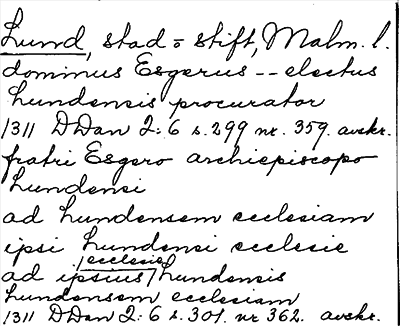 Lund, stad = stift, Malm. l.
dominus Esgerus -- electus
Lundensis procurator
1311 DDan 2:6 s. 299 nr. 359. avskr.
fratri Esgero archiepiscopo
Lundensi
ad Lundensem ecclesiam
ipsi Lundensi ecclesie
ad ipsius /ecclesie/ Lundensis
Lundensem ecclesiam
1311 DDan 2:6 s. 301. nr 362. avskr.